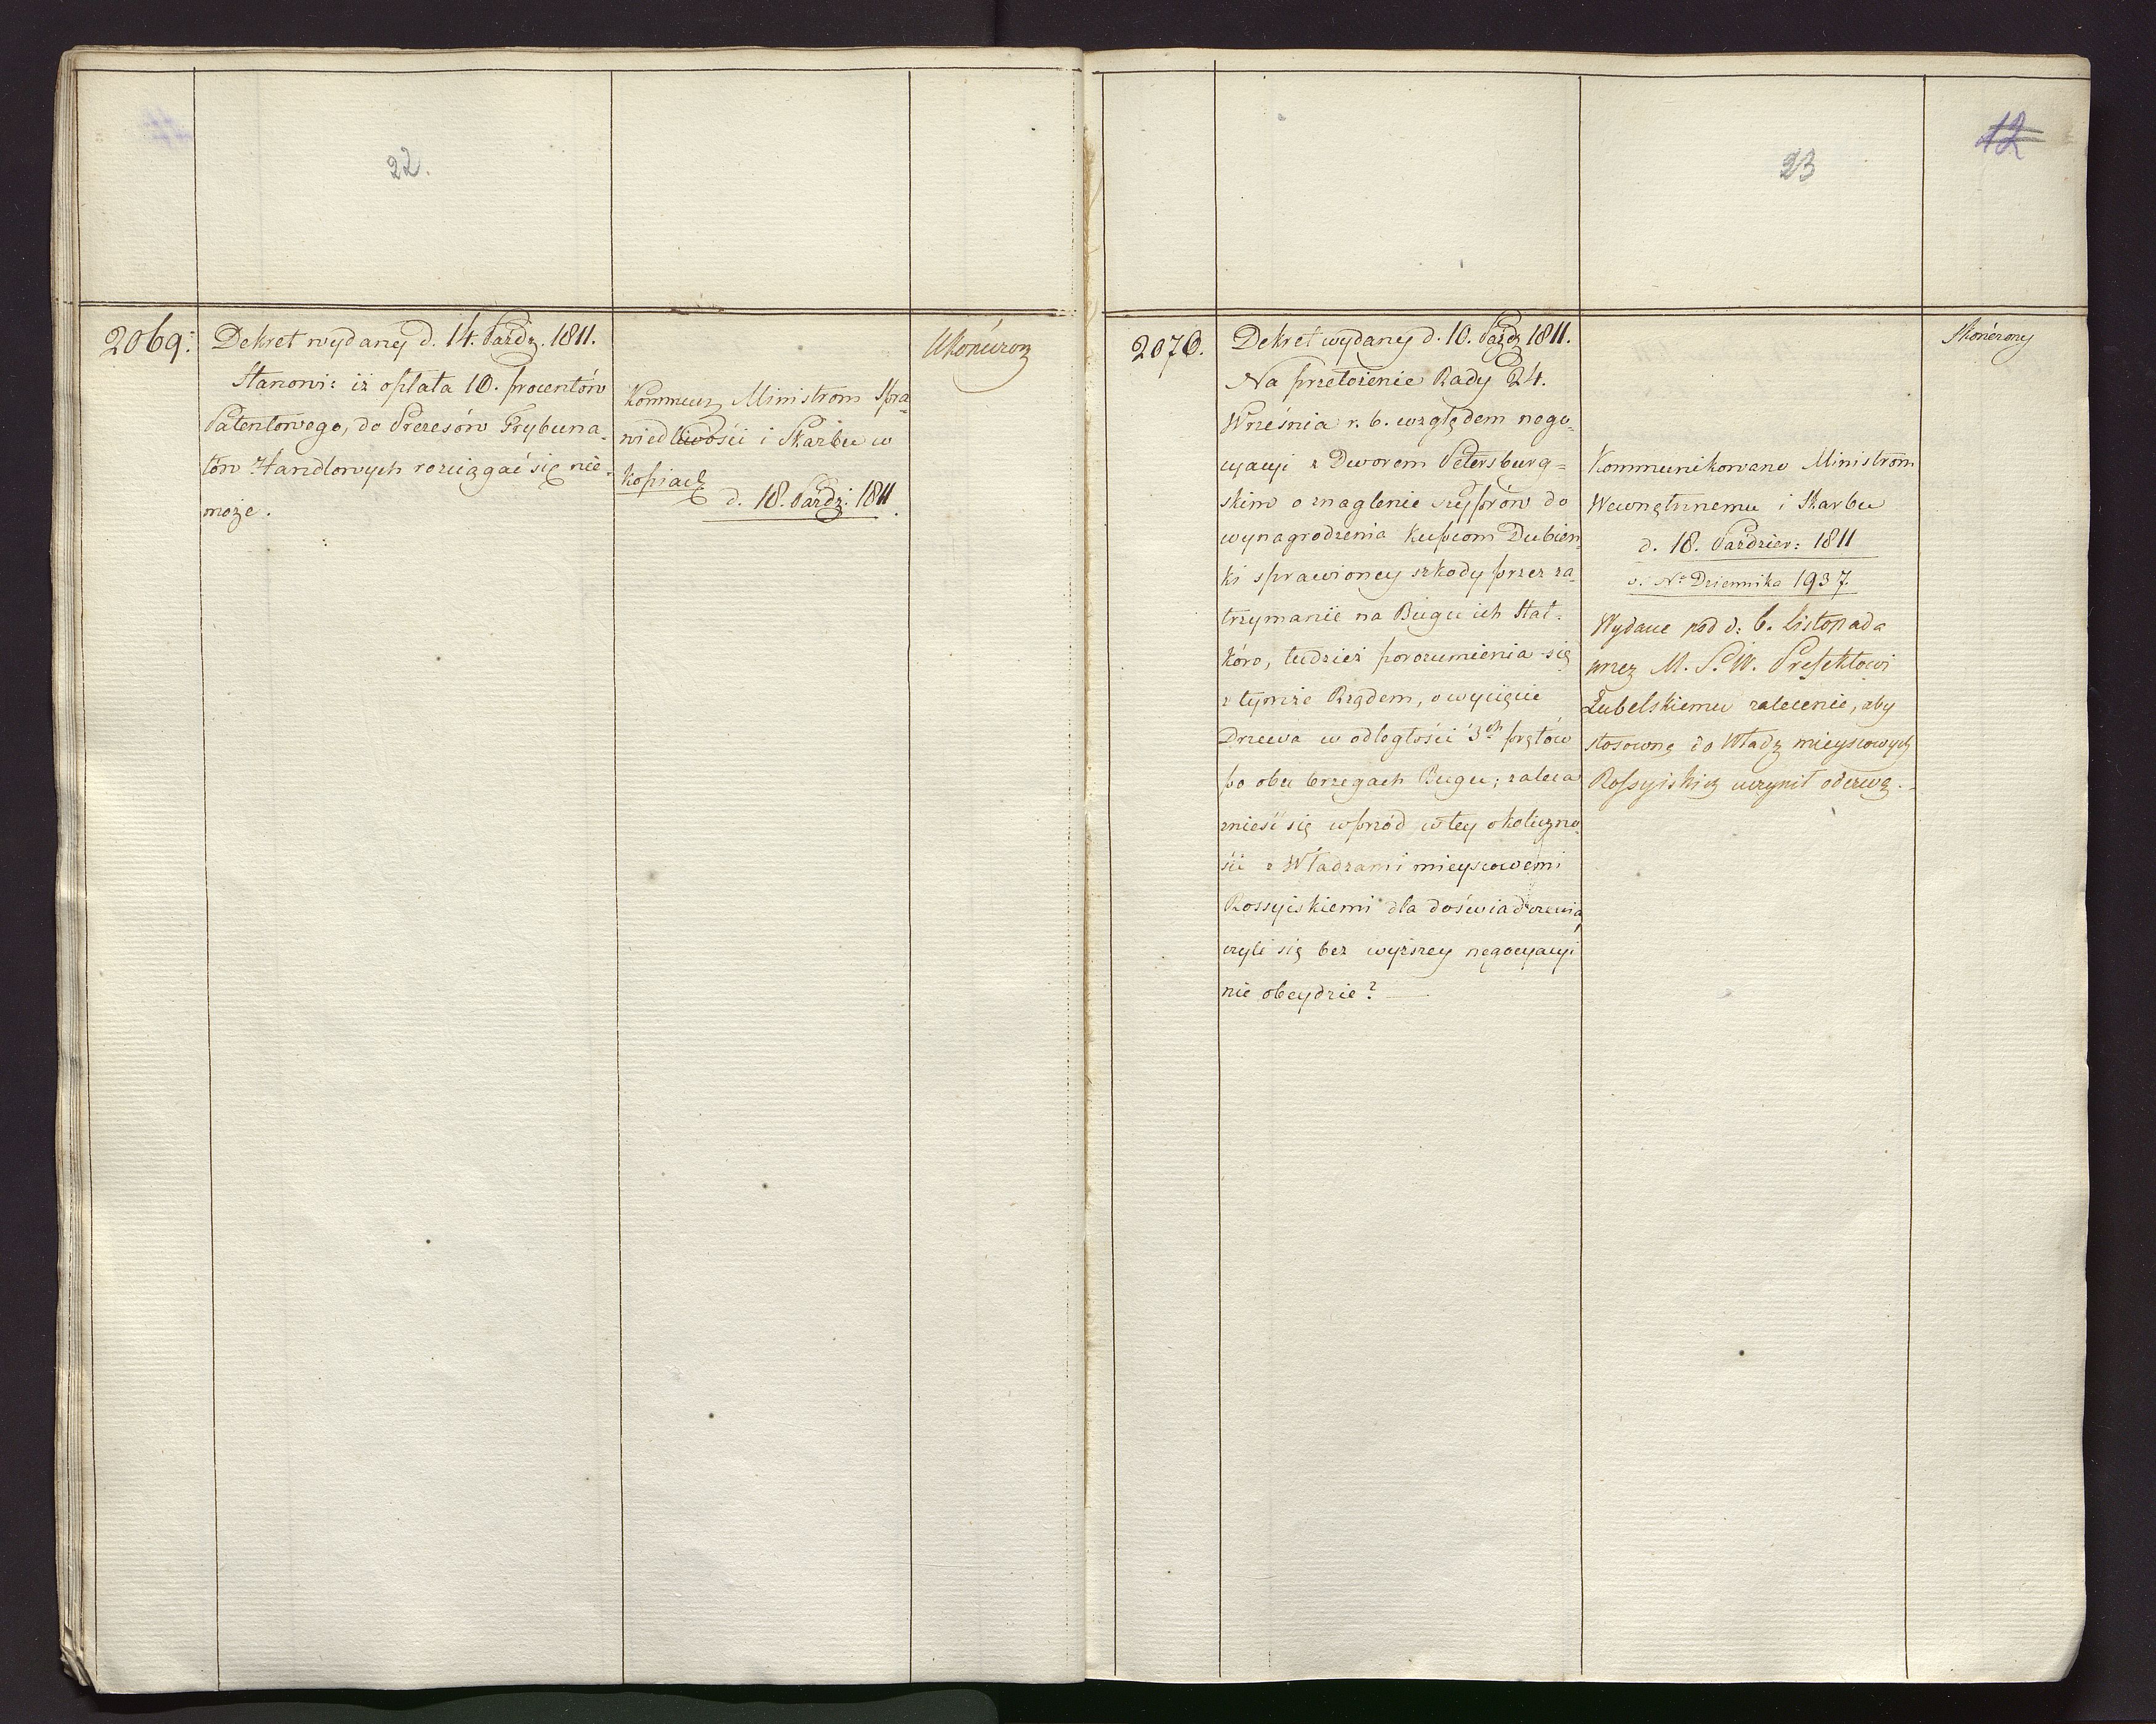 22.
2069:
Dekret wydany d. 14. Paźdz. 1811.
Stanowi: iż opłata 10. procentów
Patentowego, do Prezesów Trybuna-
łów Handlowych rozciągać się nie-
może.
Kommuz Ministrom Spra-
wiedliwości i Skarbu w
kopiach
d. 18. Paźdz. 1811.
Ukończon
12
23
2070.
Dekret wydany d. 10. Paźdz 1811.
Na przełożenie Rady 24.
Września r. b. względem nego-
cyacyi z Dworem Petersburg=
skim o znaglenie szyprów do
wynagrodzenia Kupcom Dubien-
ki sprawioney szkody przez za-
trzymanie na Bugu ich Stat-
ków, tudzież porozumienia się
z tymże Rządem, o wycięcie
Drzewa w odległości 3ch prętów
po obu brzegach Bugu; zaleca
znieść się wprzód w tey okoliczno-
ści z Władzami mieyscowemi
Rossyiskiemi dla doświadczenia,
czyli się bez wyższey negocyacyi
nie obeydzie?
Kommunikowano Ministrom
Wewnętrznemu i Skarbu
d. 18. Paździer: 1811
v. No Dziennika 1937.
Wydane pod d: 6. Listopada
przez M. S. W. Prefektowi
Lubelskiemu zalecenie, aby
stosowną do Władz mieyscowych
Rossyiskich uczynił odezwę.
Skończony